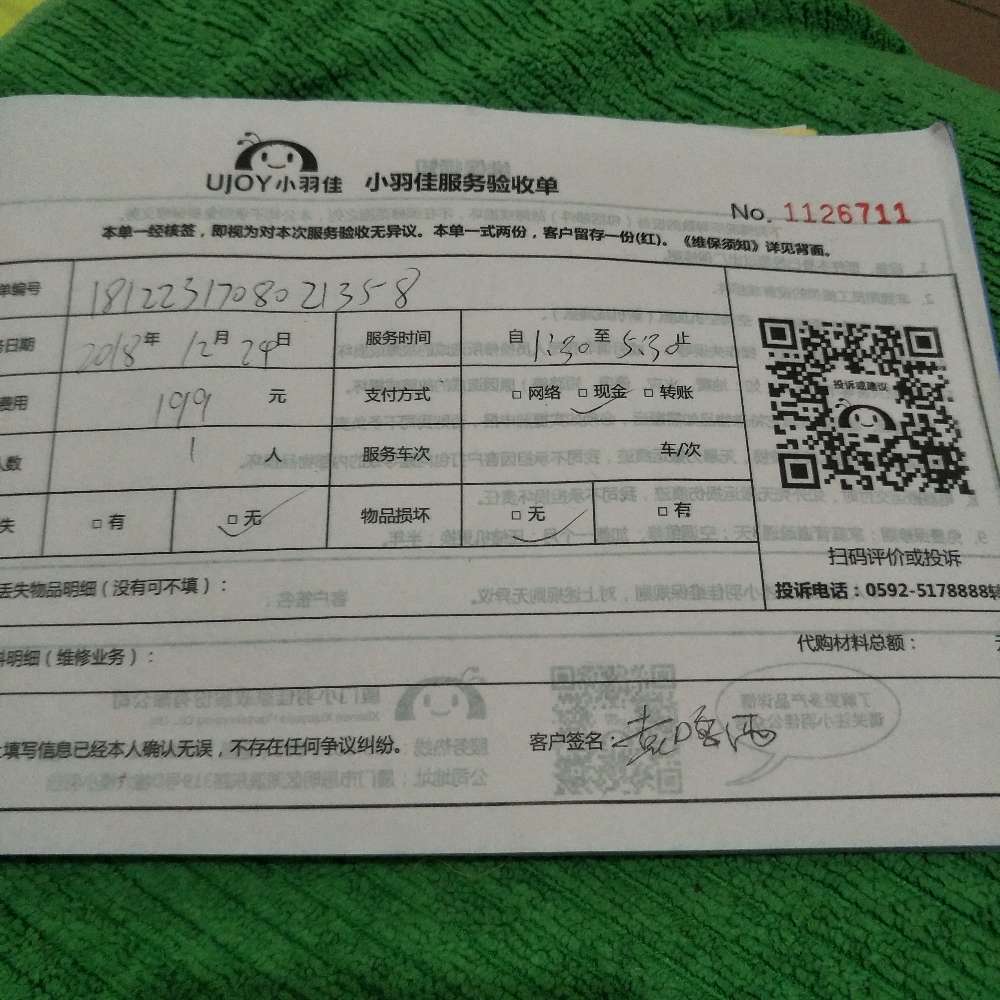 UJOY小羽佳 小羽佳服务验收单
No. 1126711
本单一经核签，即视为对本次服务验收无异议。本单一式两份，客户留存一份(红)。《维保须知》详见背面。
单编号 1812231708021358
务日期 2018年 12月 24日 服务时间 自1:30至5:30止
费用 199 元 支付方式 □ 网络 □ 现金 □ 转账
人数 1 人 服务车次 车/次
失 □ 有 □ 无 物品损坏 □ 无 □ 有
投诉或建议
扫码评价或投诉
投诉电话：0592-5178888转
丢失物品明细（没有可不填）：
料明细（维修业务）： 代购材料总额：
上填写信息已经本人确认无误，不存在任何争议纠纷。 客户签名：